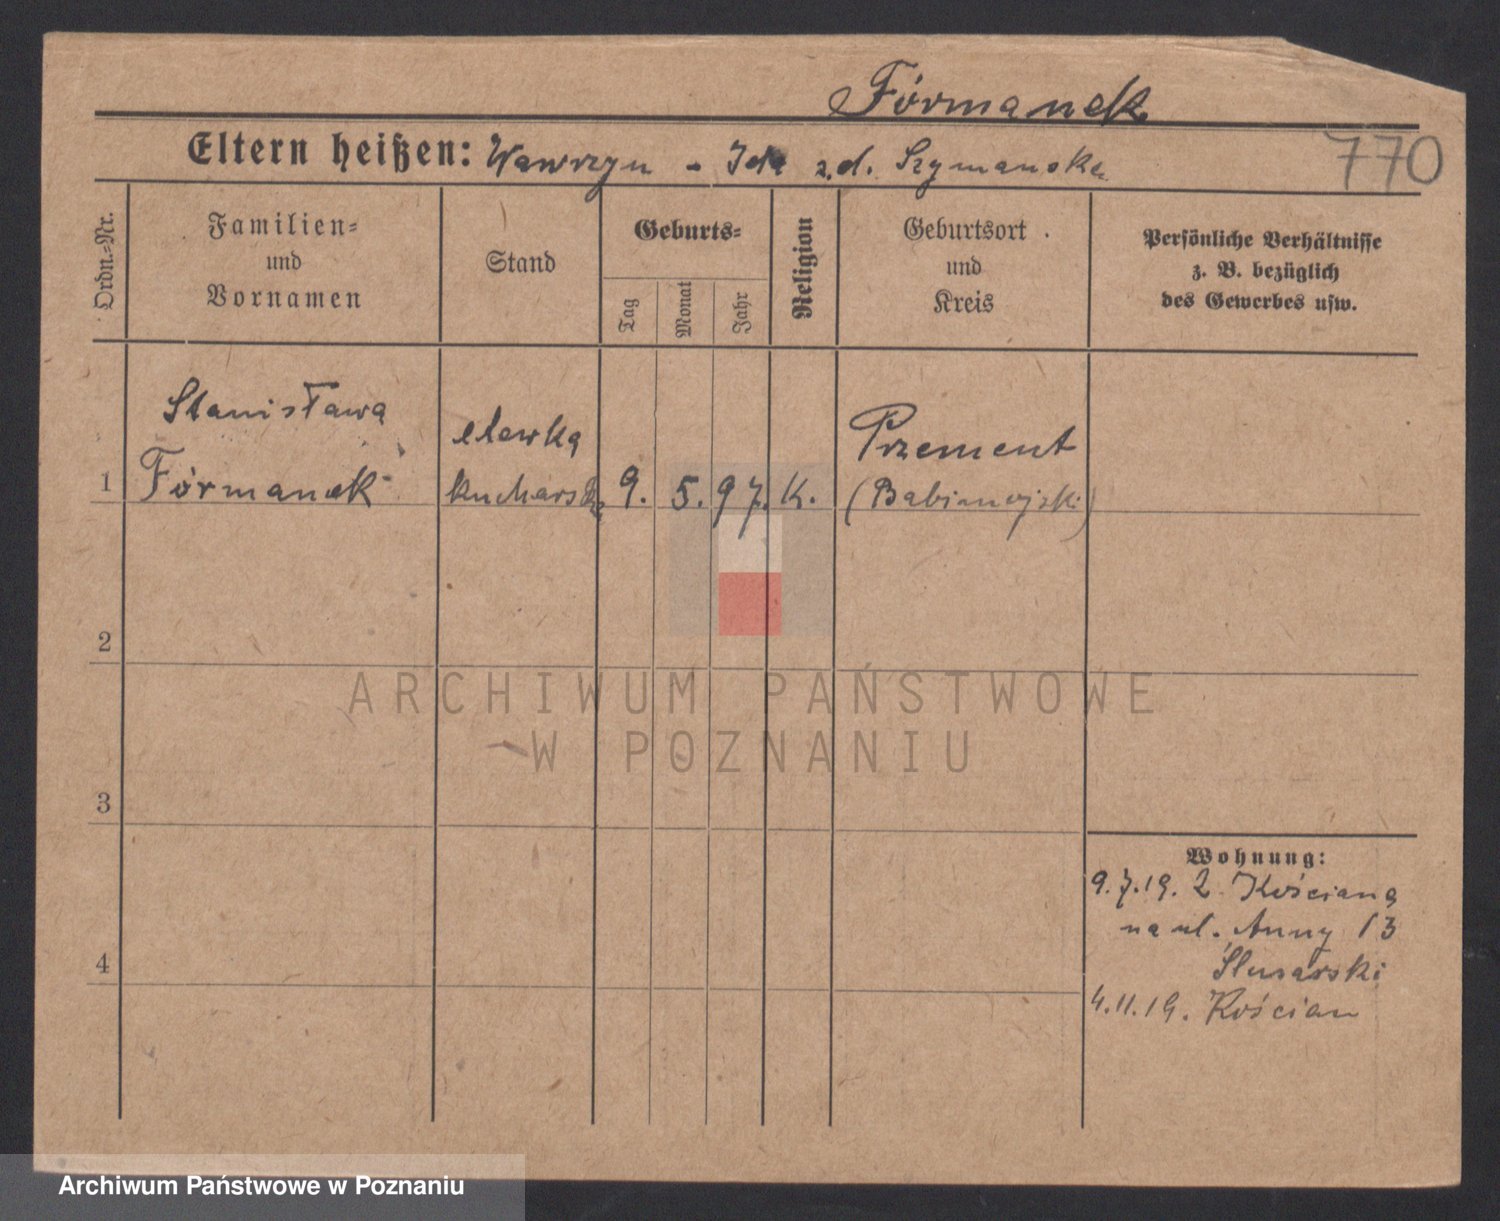 Fórmanek
Eltern heißen: Wawrzyn - Ida z.d. Szymanska
770
Ordn.-Nr.
Familien-
und
Vornamen
Stand
Geburts-
Tag
Monat
Jahr
Religion
Geburtsort
und
Kreis
Persönliche Verhältnisse
z. B. bezüglich
des Gewerbes usw.
1
Stanisława
Fórmanek
elewka
kucharska
9. 5. 97. K.
Przement
(Babimojski)
2
3
4
ARCHIWUM PAŃSTWOWE
W POZNANIU
Wohnung:
9.7.19. Z Kościana
na ul. Anny 13
Ślusarski
4.11.19. Kościan
Archiwum Państwowe w Poznaniu